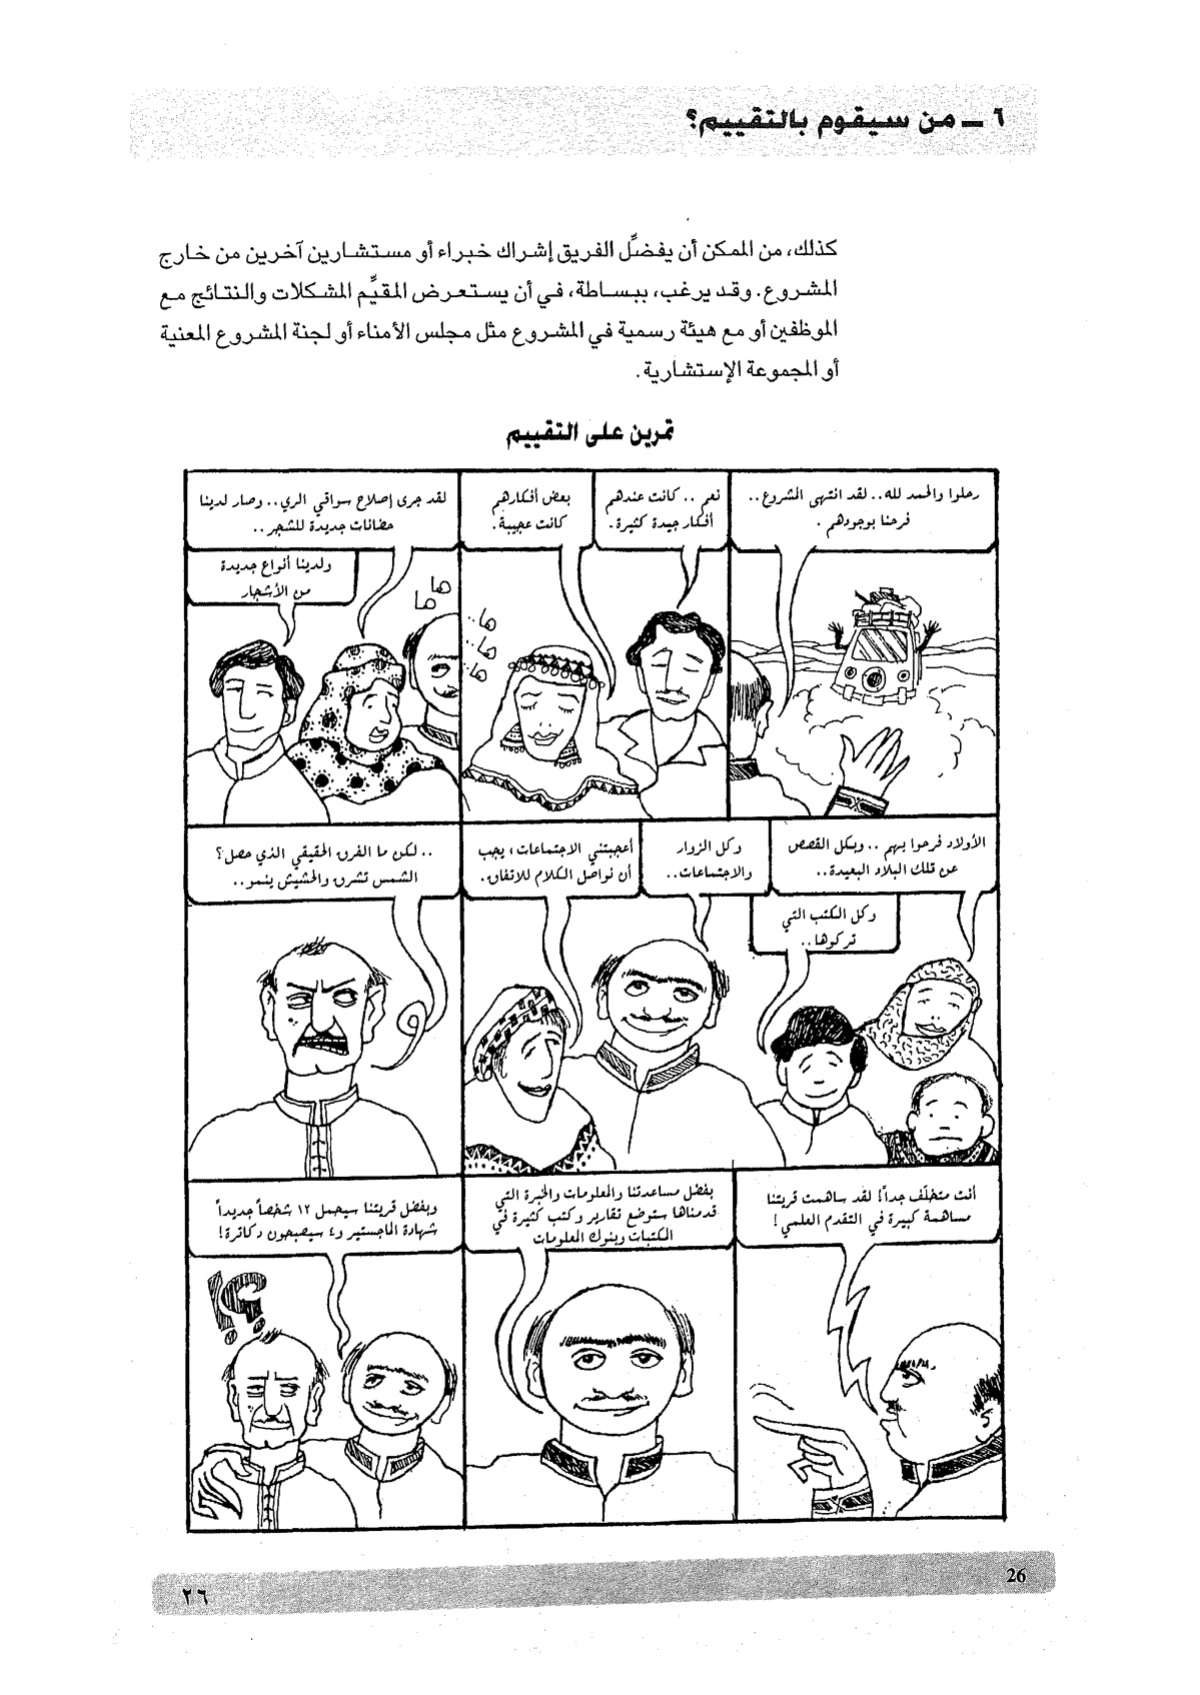 ٦ ــ من سيقوم بالتقييم؟
كذلك، من الممكن أن يفضِّل الفريق إشراك خبراء أو مستشارين آخرين من خارج
المشروع. وقد يرغب، ببساطة، في أن يستعرض المقيِّم المشكلات والنتائج مع
الموظفين أو مع هيئة رسمية في المشروع مثل مجلس الأمناء أو لجنة المشروع المعنية
أو المجموعة الإستشارية.
تمرين على التقييم
رحلوا والحمد لله.. لقد انتهى المشروع..
فرحنا بوجودهم .
نعم .. كانت عندهم
أفكار جيدة كثيرة.
بعض أفكارهم
كانت عجيبة.
ها..
ها..
ها..
لقد جرى إصلاح سواقي الري.. وصار لدينا
حضانات جديدة للشجر..
ولدينا أنواع جديدة
من الأشجار
ها
ها
الأولاد فرحوا بهم .. وبكل القصص
عن تلك البلاد البعيدة..
وكل الكتب التي
تركوها..
وكل الزوار
والاجتماعات..
أعجبتني الاجتماعات، يجب
أن نواصل الكلام للاتفاق.
.. لكن ما الفرق الحقيقي الذي حصل؟
الشمس تشرق والحشيش ينمو..
أنت متخلّف جداً! لقد ساهمت قريتنا
مساهمة كبيرة في التقدم العلمي!
بفضل مساعدتنا والمعلومات والخبرة التي
قدمناها ستوضع تقارير وكتب كثيرة في
المكتبات وبنوك المعلومات
وبفضل قريتنا سيحمل ١٢ شخصاً جديداً
شهادة الماجستير و٤ سيصبحون دكاترة!
؟!
26
٢٦